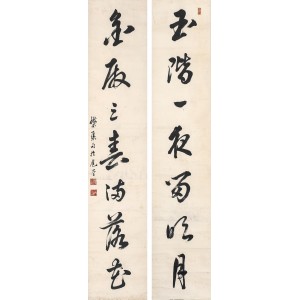 玉階一夜留明月
金殿三春滿落花